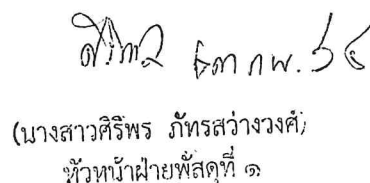 ๑๓ กพ. ๖๔
(นางสาวศิริพร ภัทรสว่างวงศ์)
หัวหน้าฝ่ายพัสดุที่ ๑